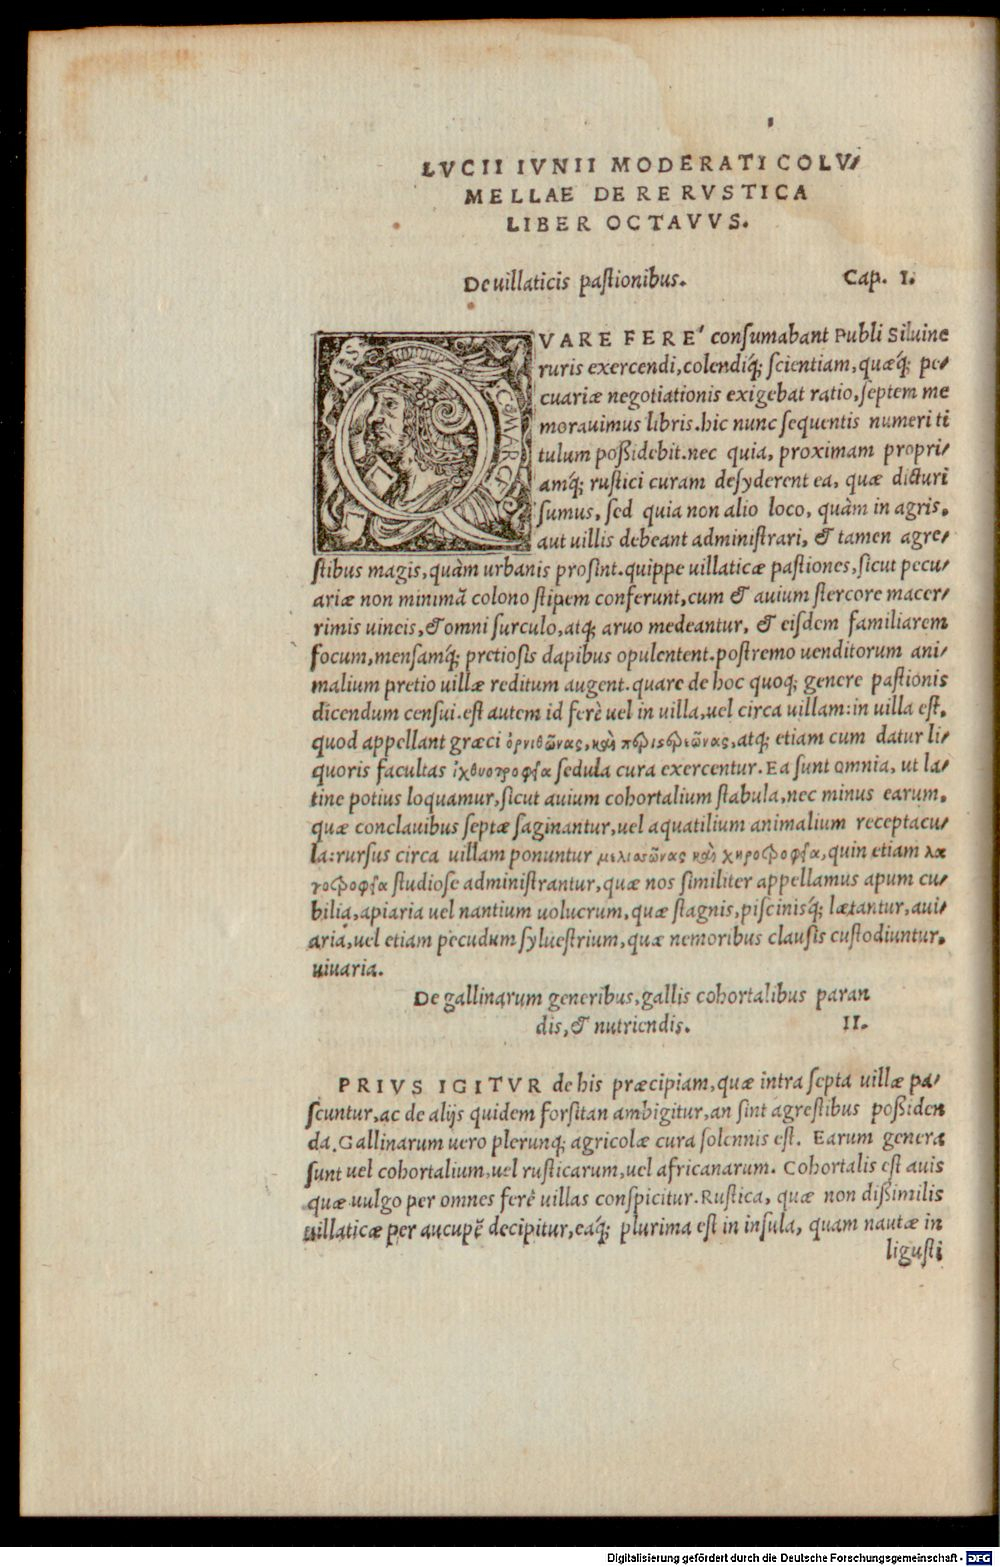 LVCII IVNII MODERATI COLV⸗
MELLAE DE RE RVSTICA
LIBER OCTAVVS.
De uillaticis pastionibus. Cap. I.
QVARE FERE' consumabant Publi Siluine
ruris exercendi, colendiq́; scientiam, quæq́; pe⸗
cuariæ negotiationis exigebat ratio, septem me
morauimus libris. hic nunc sequentis numeri ti
tulum poßidebit. nec quia, proximam propri⸗
amq́; rustici curam desyderent ea, quæ dicturi
sumus, sed quia non alio loco, quàm in agris,
aut uillis debeant administrari, & tamen agre⸗
stibus magis, quàm urbanis prosint. quippe uillaticæ pastiones, sicut pecu⸗
ariæ non minimã colono stipem conferunt, cum & auium stercore macer⸗
rimis uineis, & omni surculo, atq; aruo medeantur, & eisdem familiarem
focum, mensamq́; pretiosis dapibus opulentent. postremo uenditorum ani⸗
malium pretio uillæ reditum augent. quare de hoc quoq; genere pastionis
dicendum censui. est autem id ferè uel in uilla, uel circa uillam: in uilla est,
quod appellant græci ὀρνιθῶνας, καὶ περιστερεῶνας, atq; etiam cum datur li⸗
quoris facultas ἰχθυοτροφεῖα sedula cura exercentur. Ea sunt omnia, ut la⸗
tine potius loquamur, sicut auium cohortalium stabula, nec minus earum,
quæ conclauibus septæ saginantur, uel aquatilium animalium receptacu⸗
la: rursus circa uillam ponuntur μελισσῶνας καὶ χηνοτροφεῖα, quin etiam λα
γοτροφεῖα studiose administrantur, quæ nos similiter appellamus apum cu⸗
bilia, apiaria uel nantium uolucrum, quæ stagnis, piscinisq́; lætantur, aui⸗
aria, uel etiam pecudum syluestrium, quæ nemoribus clausis custodiuntur,
uiuaria.
De gallinarum generibus, gallis cohortalibus paran
dis, & nutriendis. II.
PRIVS IGITVR de his præcipiam, quæ intra septa uillæ pa⸗
scuntur, ac de alijs quidem forsitan ambigitur, an sint agrestibus poßiden
da. Gallinarum uero plerunq; agricolæ cura solennis est. Earum genera
sunt uel cohortalium, uel rusticarum, uel africanarum. Cohortalis est auis
quæ uulgo per omnes ferè uillas conspicitur. Rustica, quæ non dißimilis
uillaticæ per aucupẽ decipitur, eaq́; plurima est in insula, quam nautæ in
ligusti
Digitalisierung gefördert durch die Deutsche Forschungsgemeinschaft - DFG